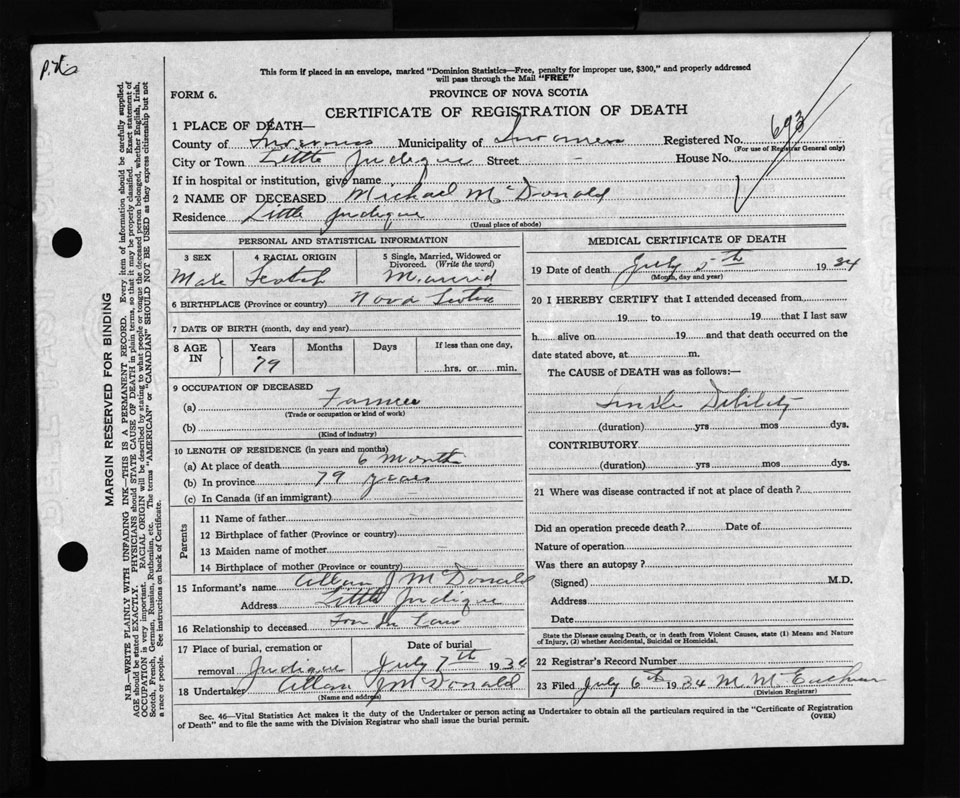 P.H.
This form if placed in an envelope, marked "Dominion Statistics—Free, penalty for improper use, $300," and properly addressed
will pass through the Mail "FREE"
FORM 6.
PROVINCE OF NOVA SCOTIA
CERTIFICATE OF REGISTRATION OF DEATH
1 PLACE OF DEATH—
County of Inverness Municipality of Inverness Registered No. 693
(For use of Registrar General only)
City or Town Little Judique Street - House No.
If in hospital or institution, give name
2 NAME OF DECEASED Michael McDonald
Residence Little Judique
(Usual place of abode)
PERSONAL AND STATISTICAL INFORMATION
3 SEX 4 RACIAL ORIGIN 5 Single, Married, Widowed or Divorced. (Write the word)
Male Scotch Married
6 BIRTHPLACE (Province or country) Nova Scotia
7 DATE OF BIRTH (month, day and year)
8 AGE IN Years Months Days If less than one day,
79 hrs. or min.
9 OCCUPATION OF DECEASED
(a) Farmer
(Trade or occupation or kind of work)
(b)
(Kind of industry)
10 LENGTH OF RESIDENCE (in years and months)
(a) At place of death 6 Month
(b) In province 79 years
(c) In Canada (if an immigrant)
Parents
11 Name of father
12 Birthplace of father (Province or country)
13 Maiden name of mother
14 Birthplace of mother (Province or country)
15 Informant's name Allan J McDonald
Address Little Judique
16 Relationship to deceased Son In Law
17 Place of burial, cremation or Date of burial
removal Judique July 7th 1934
18 Undertaker Allan J McDonald
(Name and address)
MEDICAL CERTIFICATE OF DEATH
19 Date of death July 5th 1934
(Month, day and year)
20 I HEREBY CERTIFY that I attended deceased from
19 to 19 that I last saw
h alive on 19 and that death occurred on
date stated above, at m.
The CAUSE of DEATH was as follows:—
Senile Debility
(duration) yrs mos dys.
CONTRIBUTORY
(duration) yrs mos dys.
21 Where was disease contracted if not at place of death?
Did an operation precede death? Date of
Nature of operation
Was there an autopsy?
(Signed) M.D.
Address
Date
State the Disease causing Death, or in death from Violent Causes, state (1) Means and Nature
of Injury, (2) whether Accidental, Suicidal or Homicidal.
22 Registrar's Record Number
23 Filed July 6th 1934 M. McEachern
(Division Registrar)
Sec. 46—Vital Statistics Act makes it the duty of the Undertaker or person acting as Undertaker to obtain all the particulars required in the "Certificate of Registration
of Death" and to file the same with the Division Registrar who shall issue the burial permit. (OVER)
MARGIN RESERVED FOR BINDING
N.B.—WRITE PLAINLY WITH UNFADING INK—THIS IS A PERMANENT RECORD. Every item of information should be carefully supplied.
AGE should be stated EXACTLY. PHYSICIANS should STATE CAUSE OF DEATH in plain terms, so that it may be properly classified. Exact statement of
OCCUPATION is very important. RACIAL ORIGIN will be described by stating to what people or tongue the deceased person belonged, whether English, Irish,
Scotch, French, German, Russian, Ruthenian, etc. The terms "AMERICAN" or "CANADIAN" SHOULD NOT BE USED as they express citizenship but not
a race or people. See instructions on back of Certificate.